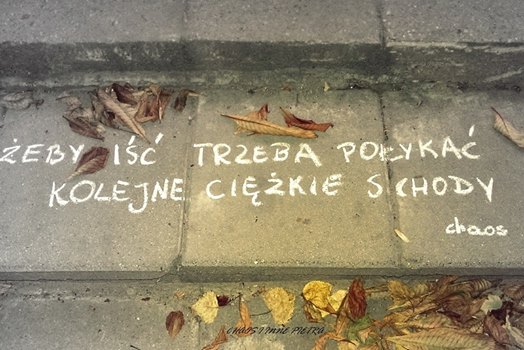 ŻEBY IŚĆ TRZEBA POŁYKAĆ
KOLEJNE CIĘŻKIE SCHODY
chaos